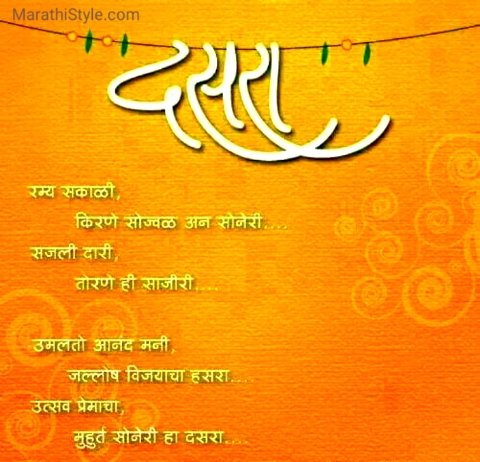 MarathiStyle.com
दसरा
रम्य सकाळी,
किरणे सोज्वळ अन सोनेरी....
सजली दारी,
तोरणे ही साजीरी....
उमलतो आनंद मनी,
जल्लोष विजयाचा हसरा....
उत्सव प्रेमाचा,
मुहुर्त सोनेरी हा दसरा....